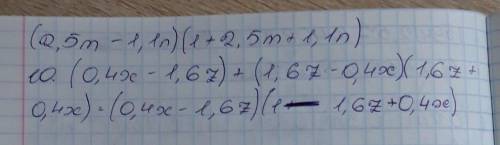 (2,5m-1,1n)(1+2,5m+1,1n)
10. (0,4x-1,6z)+(1,6z-0,4x)(1,6z+
0,4x)=(0,4x-1,6z)(1- 1,6z+0,4x)